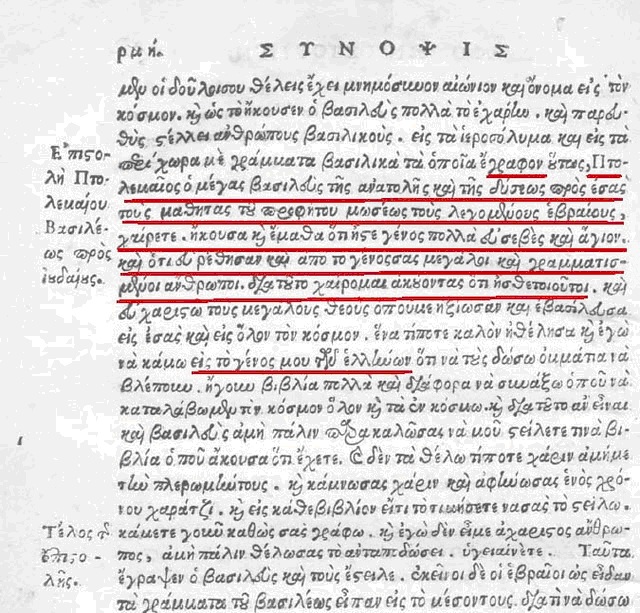 ρμή. ΣΥΝΟΨΙΣ
μϑν οἱ δοῦλοι σου θέλεις ἔχει μνημόσυνον αἰώνιον καὶ ὄνομα εἰς τὸν
κόσμον. κὴ ὡς τὸ ἤκουσεν ὁ βασιλεὺς πολλὰ τὸ ἐχάρην. καὶ παρευ-
θὺς στέλλει ἀνθρώπους βασιλικοὺς. εἰς τὰ ἱεροσόλυμα καὶ εἰς τὰ
περίχωρα μὲ γράμματα βασιλικὰ τὰ ὁποῖα ἔγραφον οὕτως, Πτο-
Ἐπιστο-
λεμαῖος ὁ μέγας βασιλεὺς τῆς ἀνατολῆς καὶ τῆς δύσεως πρὸς ἐσᾶς
λὴ Πτο-
τοὺς μαθητὰς τοῦ προφήτου μωσέως τοὺς λεγομένους ἑβραίους,
λεμαίου
χαίρετε. ἤκουσα κὴ ἔμαθα ὅτι ἦστε γένος πολλὰ εὐσεβὲς καὶ ἅγιον.
Βασιλέ-
καὶ ὅτι εὑρέθησαν καὶ ἀπὸ τὸ γένος σας μεγάλοι καὶ γραμματισ-
ως πρὸς
μένοι ἄνθρωποι. διὰ τοῦτο χαίρομαι ἀκούοντας ὅτι ἦσθε τοιοῦτοι. καὶ
ἰουδαίους.
εὐχαριστῶ τοὺς μεγάλους θεοὺς ὁποῦ με ἠξίωσαν καὶ ἐβασίλευσα
εἰς ἐσᾶς καὶ εἰς ὅλον τὸν κόσμον. ἕνα τίποτε καλὸν ἠθέλησα κὴ ἐγὼ
νὰ κάμω εἰς τὸ γένος μου τῶν ἑλλήνων ὅτι νὰ τοὺς δώσω ὀμμάτια νὰ
βλέπουν. ἤγουν βιβλία πολλὰ καὶ διάφορα νὰ συνάξω ὁποῦ νὰ
καταλάβωμεν τὸν κόσμον ὅλον κὴ τὰ ἐν κόσμῳ. κὴ διὰ τοῦτο ἂν εἶναι
καὶ βασιλεὺς ἀμὴ πάλιν παρακαλῶ σας νὰ μοῦ στείλετε τινὰ βι-
βλία ὁποῦ ἄκουσα ὅτι ἔχετε. δὲν τὰ θέλω τίποτε χάριν ἀμὴ με
τὴν πληρωμήν τους. κὴ κάμνω σας χάριν καὶ ἀφήνω σας ἑνὸς χρό-
νου χαράτζι. κὴ εἰς κάθε βιβλίον εἴ τι τὸ τιμήσετε νὰ σας τὸ στείλω.
Τέλος τῆς
κάμετε γοῦν καθὼς σᾶς γράφω. κὴ ἐγὼ δὲν εἶμε ἀχάριστος ἄνθρω-
ἐπιστο-
πος, ἀμὴ πάλιν θέλω σας τὸ ἀνταπιδώσει. ὑγειαίνετε. Ταῦτα
λῆς.
ἔγραψεν ὁ βασιλεὺς καὶ τοὺς ἔστειλε. ἐκεῖνοι δὲ οἱ ἑβραῖοι ὡς εἶδαν
τὰ γράμματα τοῦ βασιλέως εἶπαν εἰς τὸ μέσον τους. διατί νὰ δώσω